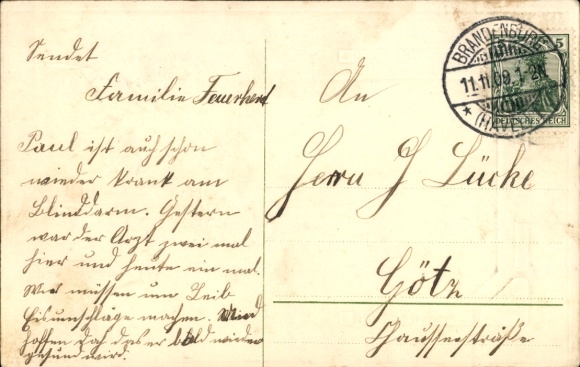 Sendet
Familie Feuerherd
Paul ist auch schon
wieder krank am
Blinddarm. Gestern
war der Arzt zwei mal
hier und heute ein mal.
Wir müssen um Leib
Eisumschläge machen. Wird
hoffen daß das er bald wieder
gesund wird.
BRANDENBURG
11.11.09.1-2N
* (HAVEL)
5
DEUTSCHES REICH
An
Herrn J Lücke
Götz
Chausseestraße